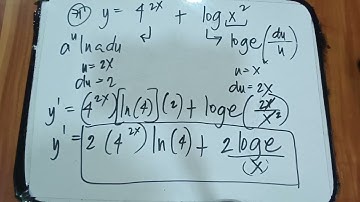 y = 4^{2x} + log x^2
a^u ln a du loge (du/u)
u = 2x u = x
du = 2 du = 2x
y' = (4^{2x}) [ln(4)] (2) + loge (2x/x^2)
y' = 2 (4^{2x}) ln(4) + 2 loge/(x)